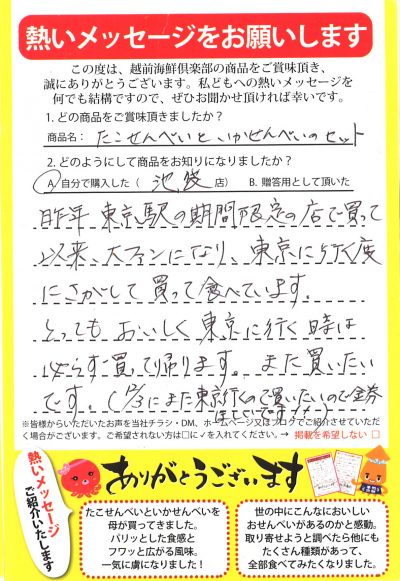 熱いメッセージをお願いします
この度は、越前海鮮倶楽部の商品をご賞味頂き、
誠にありがとうございます。私どもへの熱いメッセージを
何でも結構ですので、ぜひお聞かせ頂ければ幸いです。
1. どの商品をご賞味頂きましたか?
商品名: たこせんべいといかせんべいのセット
2. どのようにして商品をお知りになりましたか?
A. 自分で購入した( 池袋 店) B. 贈答用として頂いた
昨年 東京駅の期間限定の店で買って
以来、大ファンになり、東京に行く度
にさがして買って食べています。
とっても おいしく 東京に行く時は
必らず買って帰ります。また買いたい
です。(12/3にまた東京行くので買いたいので金券
ほしいです
※皆様からいただいたお声を当社チラシ・DM、ホームページ又はブログでご紹介させていただ
く場合がございます。ご希望されない方は□に✓を入れてください。→ 掲載を希望しない □
熱いメッセージ
ご紹介いたします
ありがとうございます
たこせんべいといかせんべいを
母が買ってきました。
パリッとした食感と
フワッと広がる風味。
一気に虜になりました!
世の中にこんなにおいしい
おせんべいがあるのかと感動。
取り寄せようと調べたら他にも
たくさん種類があって、
全部食べてみたくなりました。